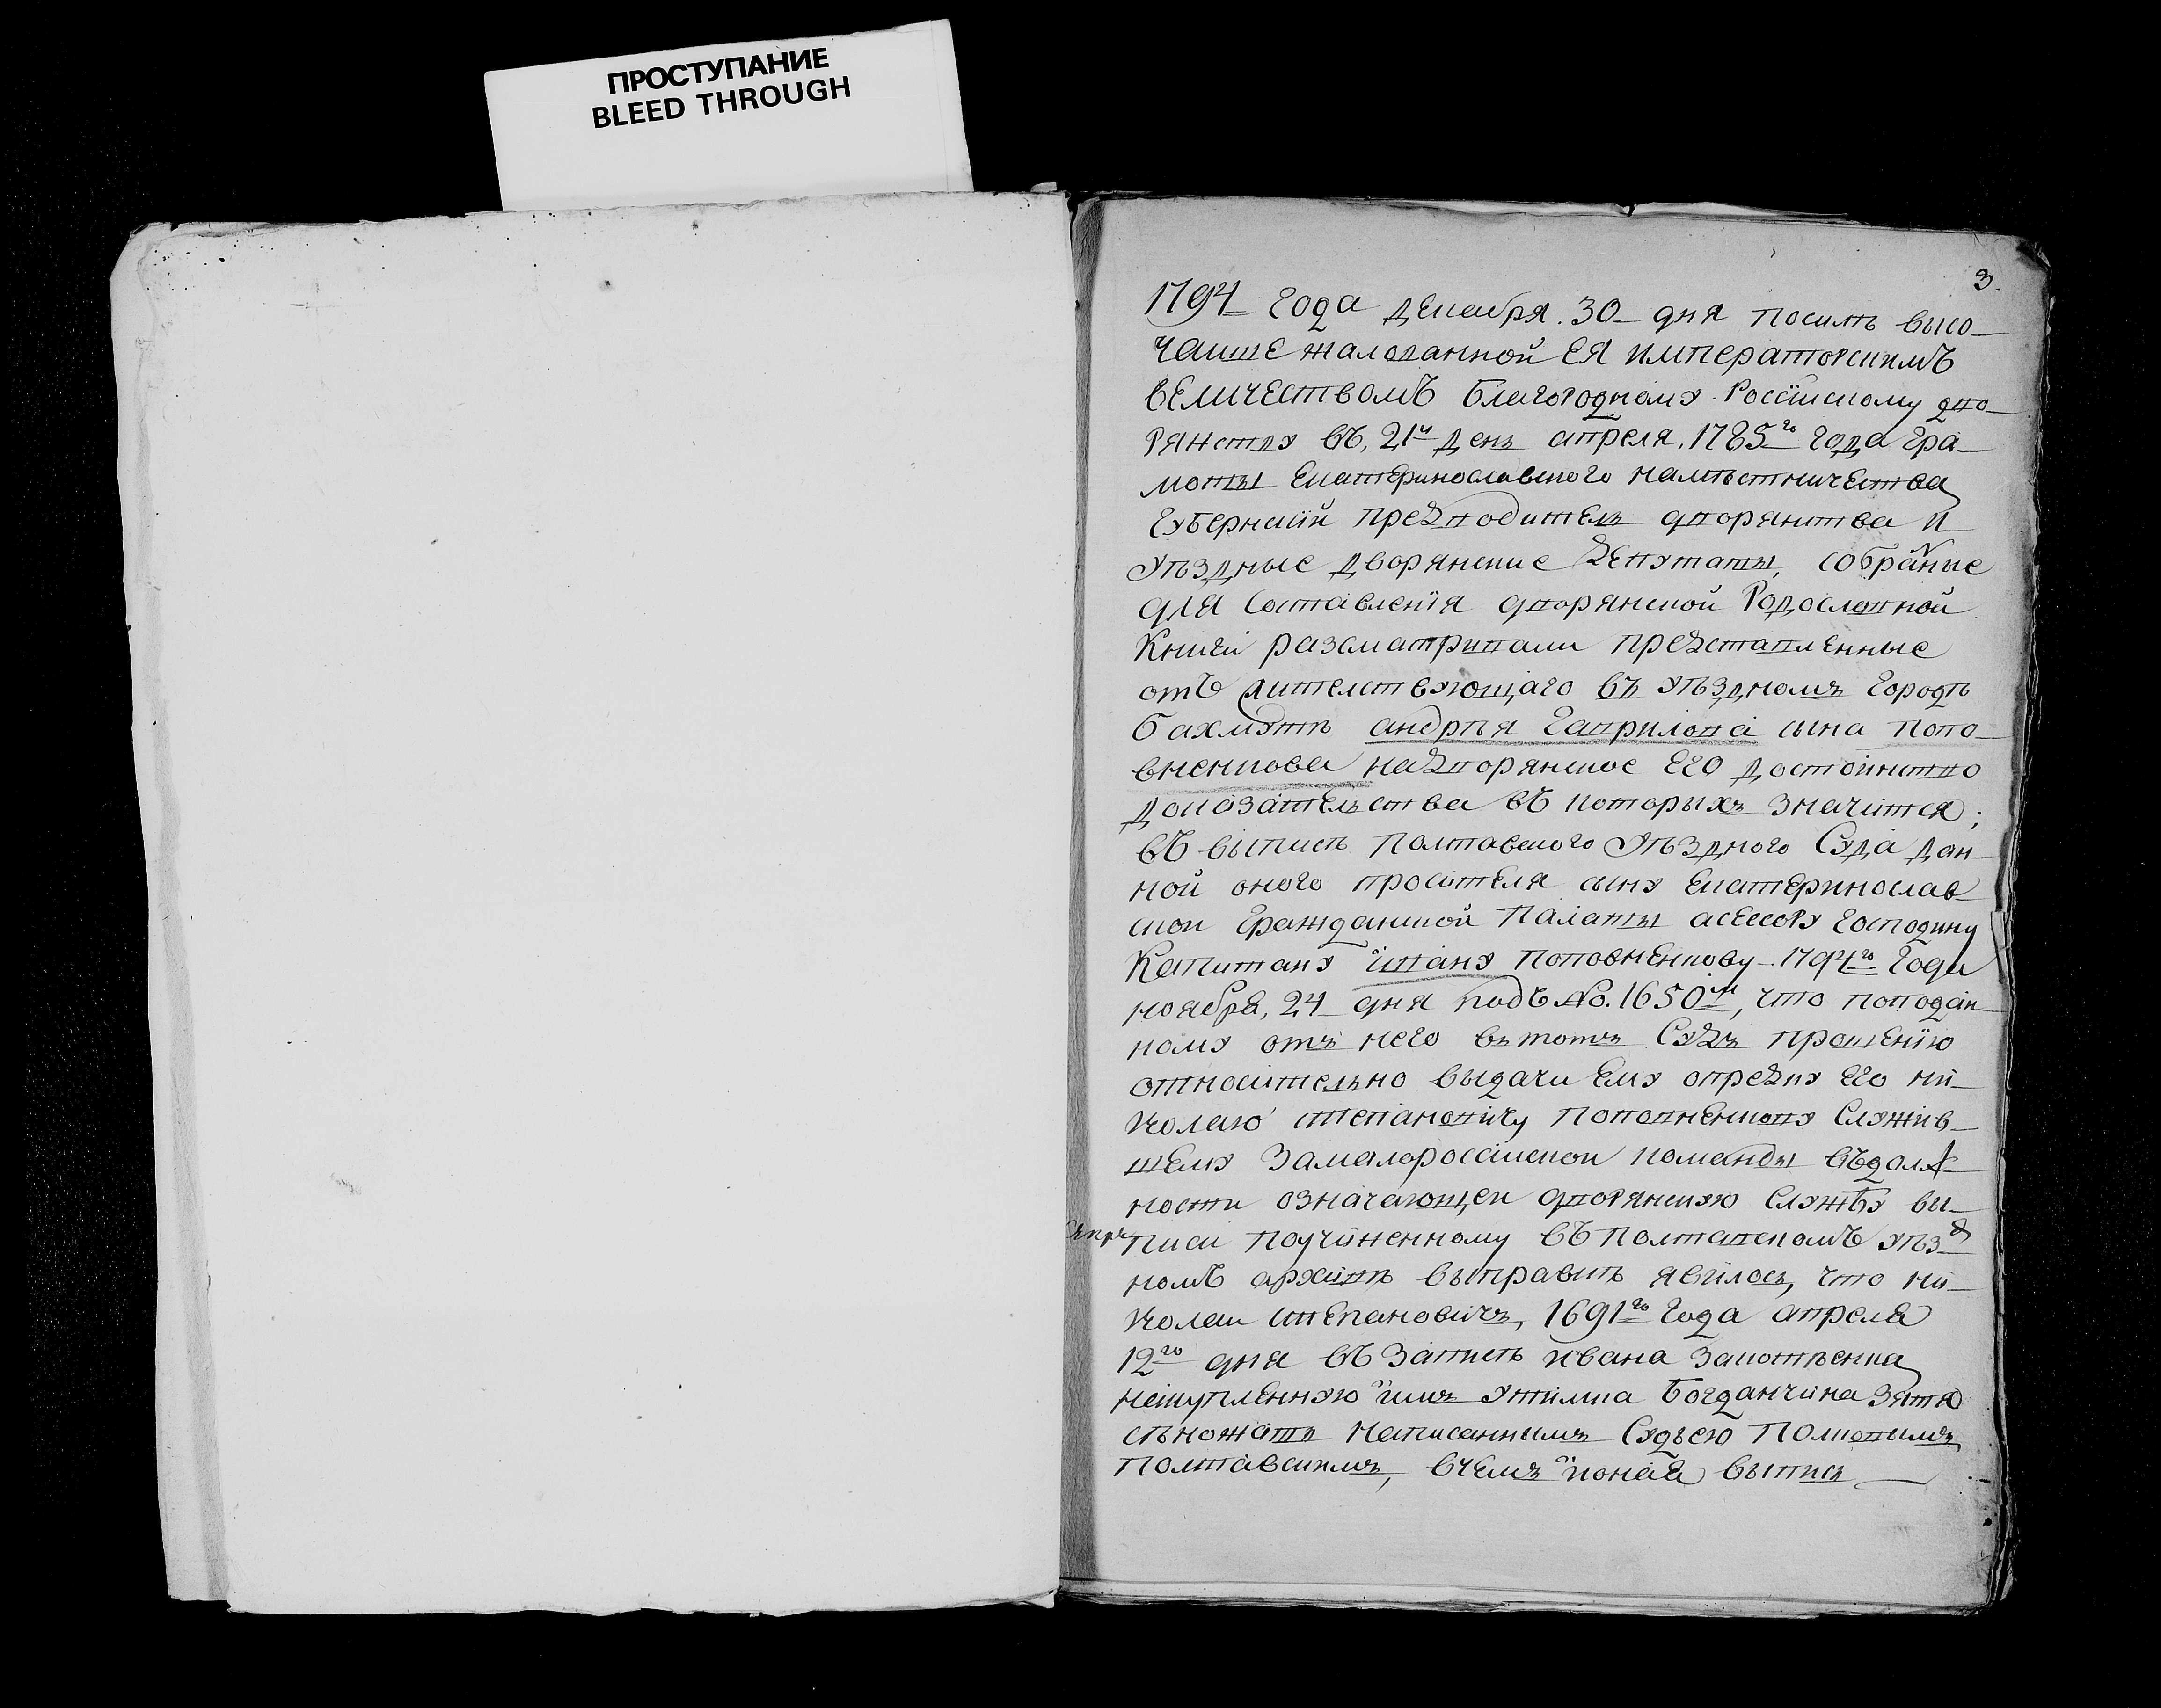 ПРОСТУПАНИЕ
BLEED THROUGH
3.
1794 года декабря. 30 дня посилѣ высо-
чаише жалованной ея императорскимъ
величествомъ благородному россїискому дво-
рянству въ, 21й день апреля, 1785го года гра-
моты екатеринославского наместничества
губернскій предводитель дворянства и
уѣздные дворянские депутаты, собрание
для составленїя дворянской родословной
книги разсматривали представленные
отъ жителствующаго въ уѣздномъ городѣ
бахмутѣ андрѣя гаврилова сына попо-
вненкова надворянское его достоинство
доказателства въ которыхъ значится;
въ выписѣ полтавского уѣздного суда дан-
ной оного просителя сыну екатеринослав-
скои гражданской палаты асессору господину
капитану ивану поповненкову 1794го года
ноября, 24 дня подъ No. 1650м, что поподан-
ному отъ него втотъ судъ прошенїю
относительно выдачи ему опредку его ни-
колаю степановичу поповненкову служив-
шему замалороссїискои команды въдолж-
ности означающеи дворянскую службу вы-
писи поучиненному въ полтавскомъ уѣзд
номъ архивѣ выправить явилось, что ни-
колаи степановичъ, 1691го года апреля
12го дня въ записѣ ивана
имъ богданчина зятя
написаннимъ судьею полковимъ
полтавскимъ, вчемъ выпись